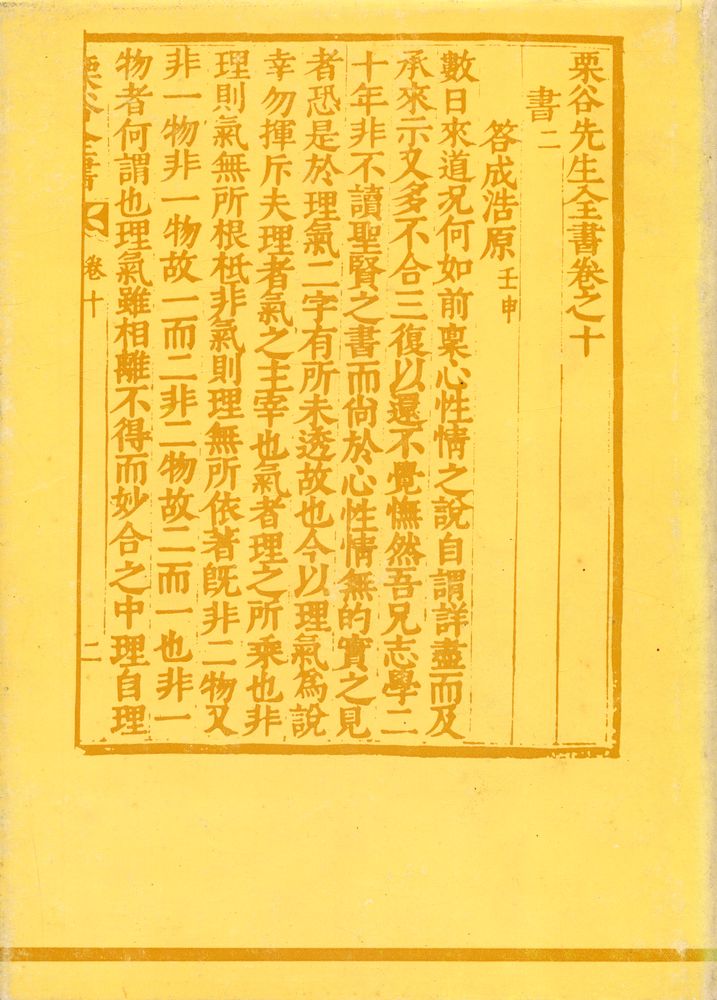 栗谷先生全書卷之十
書二
答成浩原 壬申
數日來道況何如前稟心性情之說自謂詳盡而及
承來示又多不合三復以還不覺憮然吾兄志學二
十年非不讀聖賢之書而尙於心性情無的實之見
者恐是於理氣二字有所未透故也今以理氣爲說
幸勿揮斥夫理者氣之主宰也氣者理之所乘也非
理則氣無所根柢非氣則理無所依著旣非二物又
非一物非一物故一而二非二物故二而一也非一
物者何謂也理氣雖相離不得而妙合之中理自理
栗谷全書 卷十 二